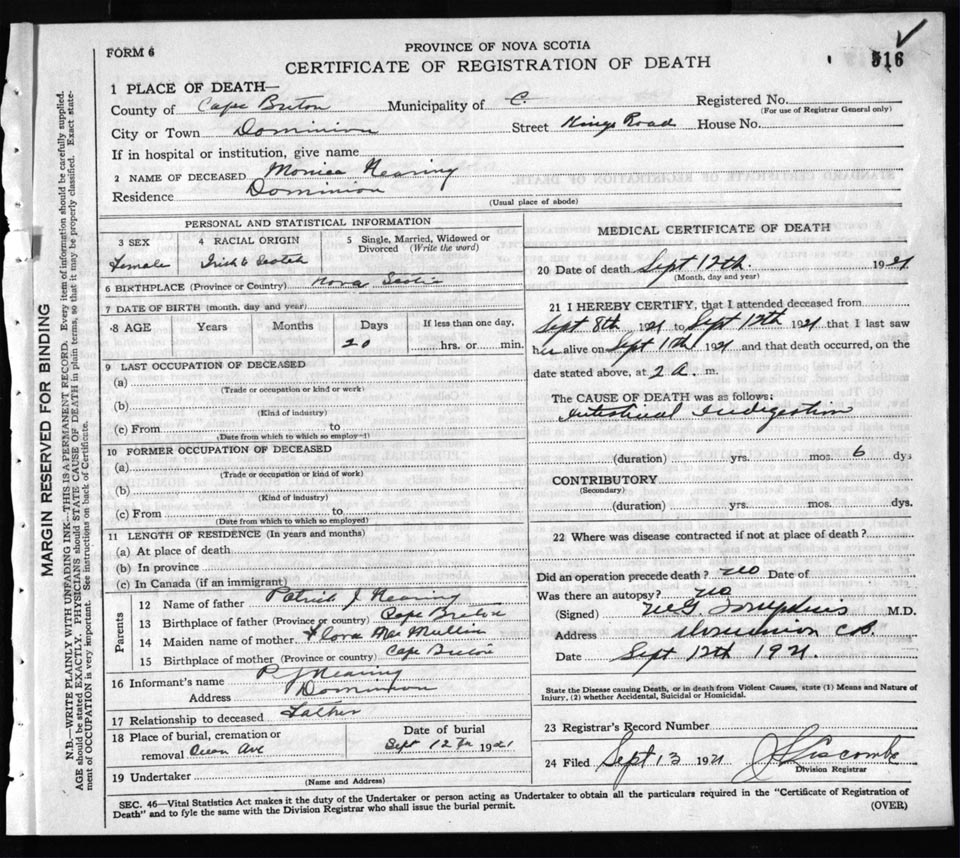 FORM 6
PROVINCE OF NOVA SCOTIA
CERTIFICATE OF REGISTRATION OF DEATH
516
1 PLACE OF DEATH—
County of Cape Breton Municipality of C. Registered No.
(For use of Registrar General only)
City or Town Dominion Street Kings Road House No.
If in hospital or institution, give name
2 NAME OF DECEASED Monica Nearing
Residence Dominion
(Usual place of abode)
PERSONAL AND STATISTICAL INFORMATION
3 SEX 4 RACIAL ORIGIN 5 Single, Married, Widowed or Divorced (Write the word)
Female Irish & Scotch
6 BIRTHPLACE (Province or Country) Nova Scotia
7 DATE OF BIRTH (month, day and year)
8 AGE Years Months Days If less than one day,
20 hrs. or min.
9 LAST OCCUPATION OF DECEASED
(a)
(Trade or occupation or kind or work)
(b)
(Kind of industry)
(c) From to
(Date from which to which so employ
10 FORMER OCCUPATION OF DECEASED
(a)
(Trade or occupation or kind of work)
(b)
(Kind of industry)
(c) From to
(Date from which to which so employed)
11 LENGTH OF RESIDENCE (In years and months)
(a) At place of death
(b) In province
(c) In Canada (if an immigrant)
Parents
12 Name of father Patrick J Nearing
13 Birthplace of father (Province or country) Cape Breton
14 Maiden name of mother Flora Mc Mullin
15 Birthplace of mother (Province or country) Cape Breton
16 Informant's name P J Nearing
Address Dominion
17 Relationship to deceased Father
18 Place of burial, cremation or Date of burial
removal Ocean Ave Sept 12th 1921
19 Undertaker
(Name and Address)
MEDICAL CERTIFICATE OF DEATH
20 Date of death Sept 12th 1921
(Month, day and year)
21 I HEREBY CERTIFY, that I attended deceased from
Sept 8th 1921 to Sept 12th 1921 that I last saw
her alive on Sept 11th 1921 and that death occurred, on the
date stated above, at 2 a. m.
The CAUSE OF DEATH was as follows:
Intestinal Indigestion
(duration) yrs. mos. 6 dys
CONTRIBUTORY
(Secondary)
(duration) yrs. mos. dys.
22 Where was disease contracted if not at place of death?
Did an operation precede death? no Date of
Was there an autopsy? no
(Signed) M.D.
Address Dominion C.B.
Date Sept 12th 1921.
State the Disease causing Death, or in death from Violent Causes, state (1) Means and Nature of
Injury, (2) whether Accidental, Suicidal or Homicidal.
23 Registrar's Record Number
24 Filed Sept 13 1921
Division Registrar
SEC. 46—Vital Statistics Act makes it the duty of the Undertaker or person acting as Undertaker to obtain all the particulars required in the "Certificate of Registration of
Death" and to fyle the same with the Division Registrar who shall issue the burial permit.
(OVER)
MARGIN RESERVED FOR BINDING
N.B.—WRITE PLAINLY WITH UNFADING INK—THIS IS A PERMANENT RECORD. Every item of information should be carefully supplied.
AGE should be stated EXACTLY. PHYSICIANS should STATE CAUSE OF DEATH in plain terms, so that it may be properly classified. Exact state-
ment of OCCUPATION is very important. See instructions on back of Certificate.